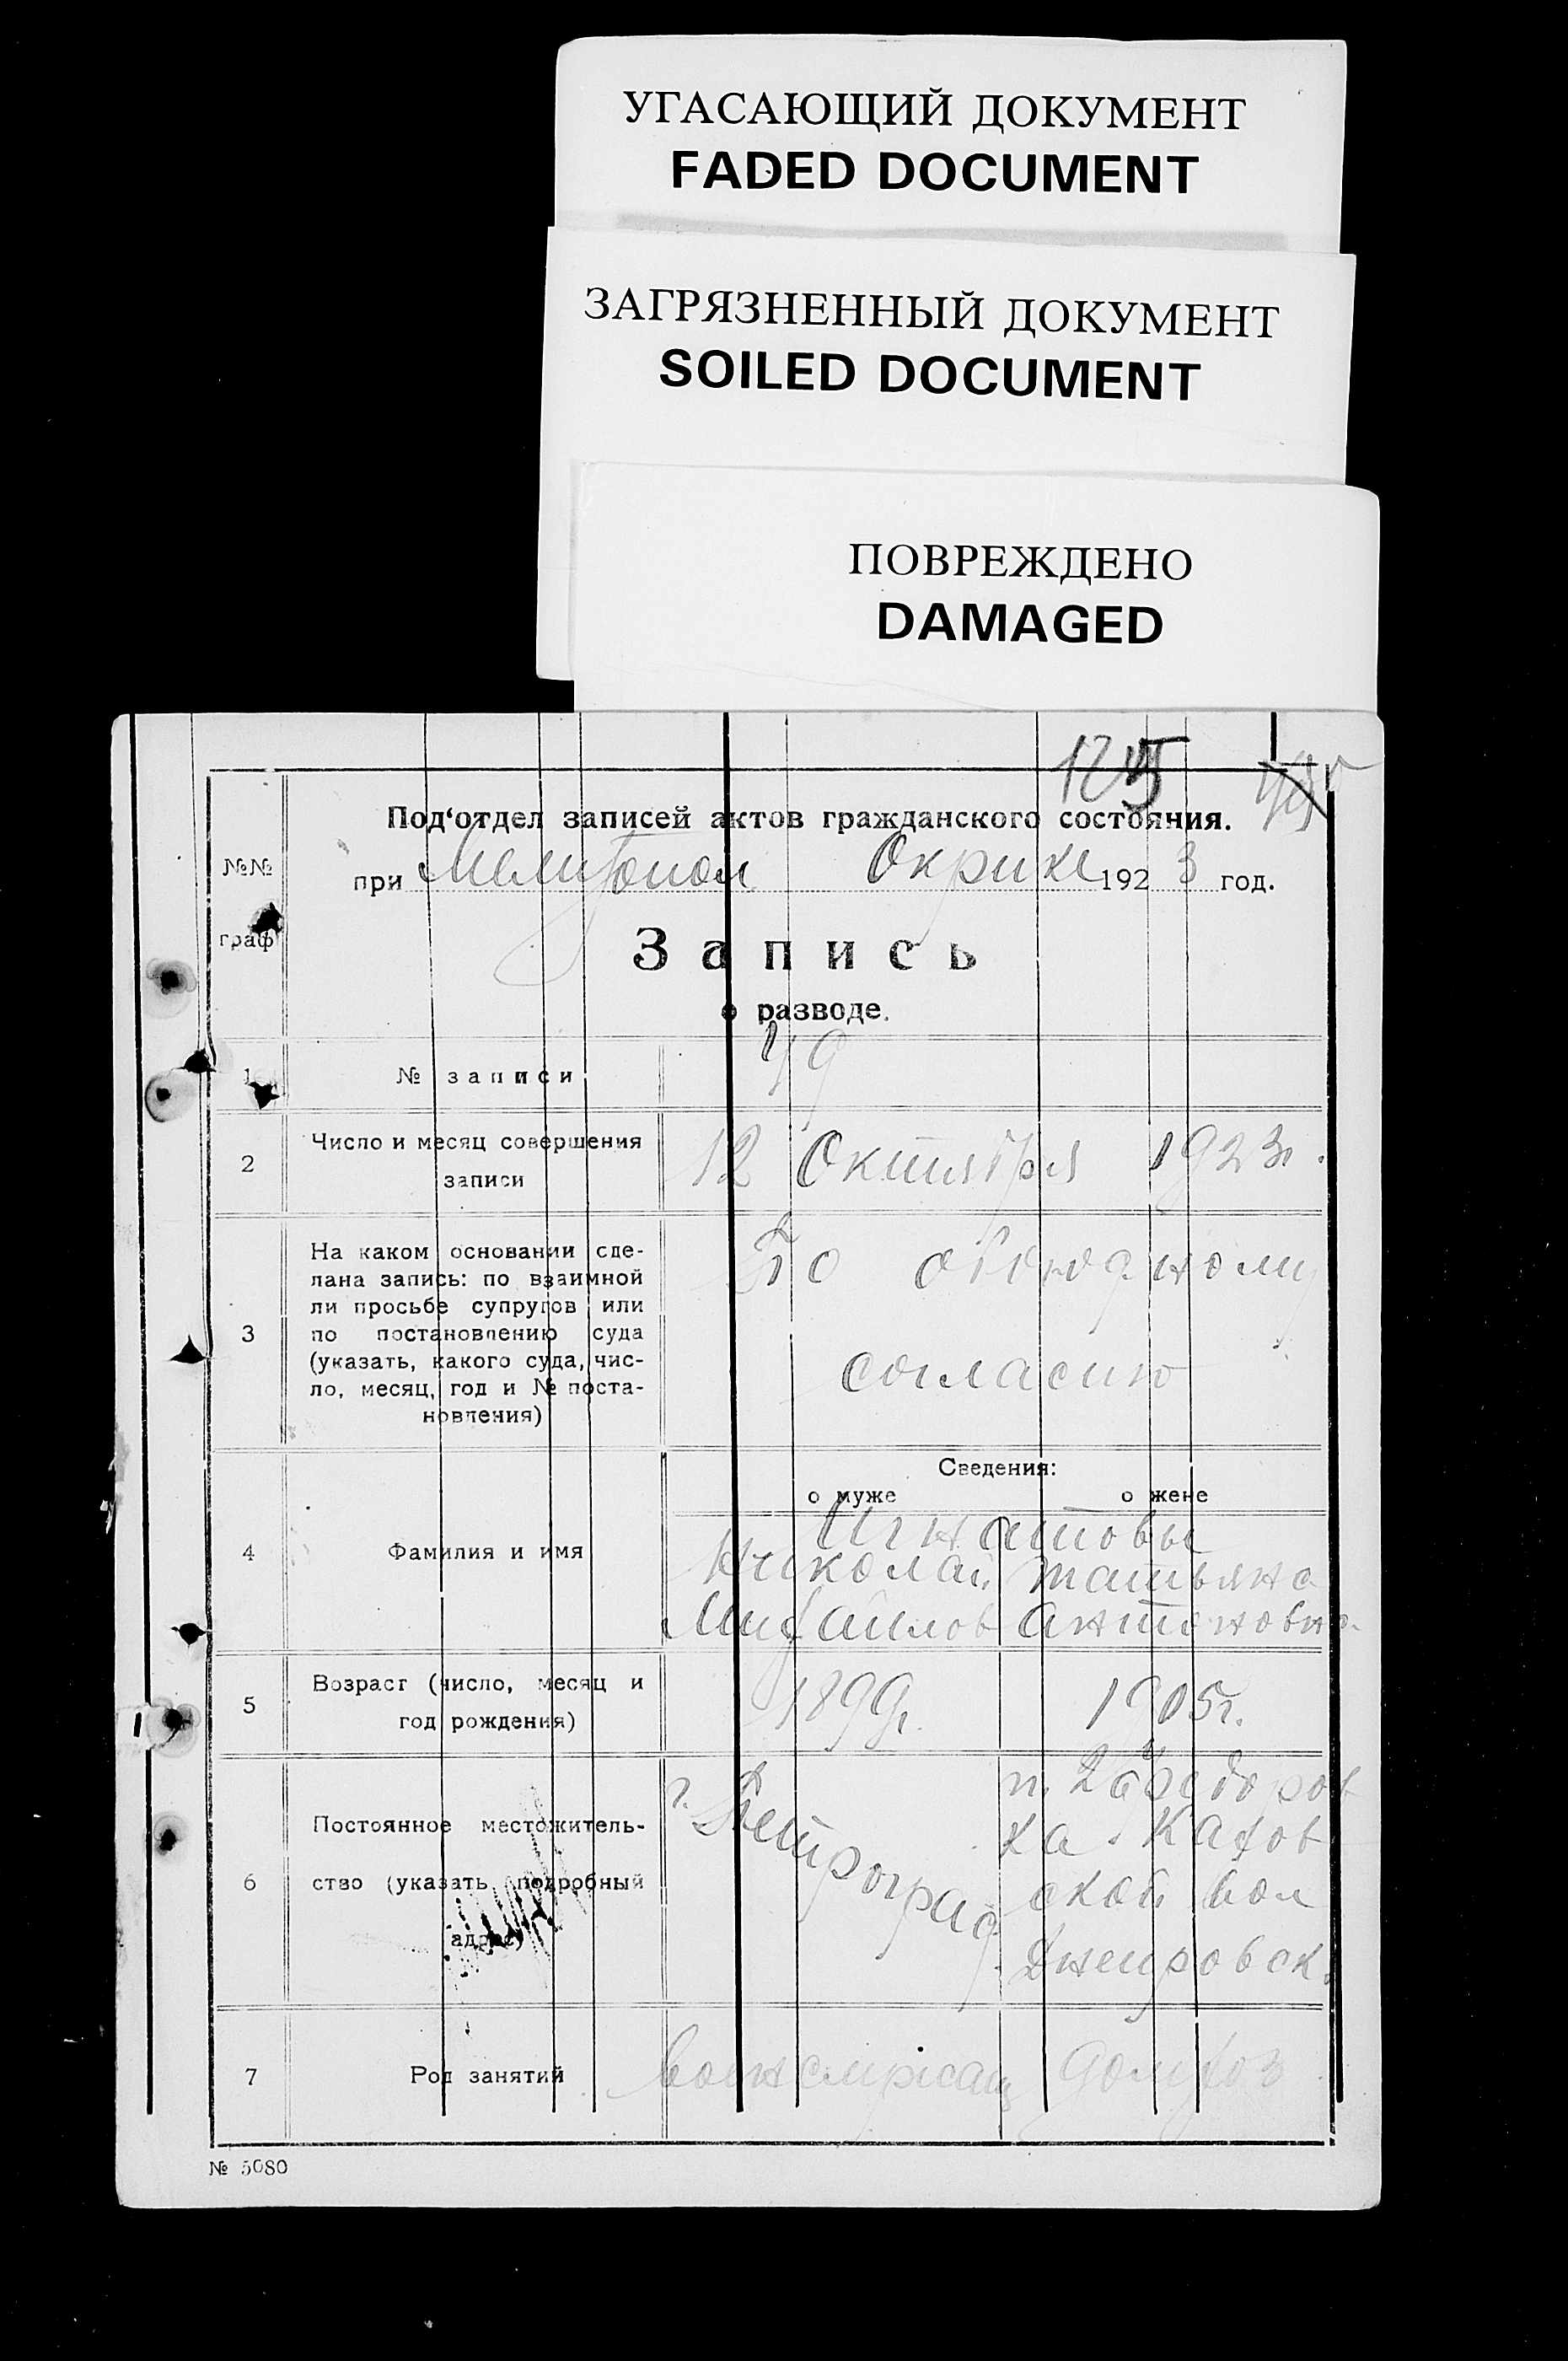 УГАСАЮЩИЙ ДОКУМЕНТ
FADED DOCUMENT
ЗАГРЯЗНЕННЫЙ ДОКУМЕНТ
SOILED DOCUMENT
ПОВРЕЖДЕНО
DAMAGED
125
Под'отдел записей актов гражданского состояния.
№№ граф
при Мелитопол Окрике 1923 год.
Запись
о разводе.
1 № записи 49
2 Число и месяц совершения
записи
12 Октября 1923г.
3 На каком основании сде-
лана запись: по взаимной
ли просьбе супругов или
по постановлению суда
(указать, какого суда, чис-
ло, месяц, год и № поста-
новления)
По обоюдному
согласию
Сведения:
о муже о жене
4 Фамилия и имя
Игнатовы
Николай Татьяна
Михайлов Антоновна
5 Возраст (число, месяц и
год рождения)
1899г. 1905г.
6 Постоянное местожитель-
ство (указать подробный
адрес)
г. Петроград
Кахов
ской вол
Днепровск.
7 Род занятий
домхоз
№ 5080